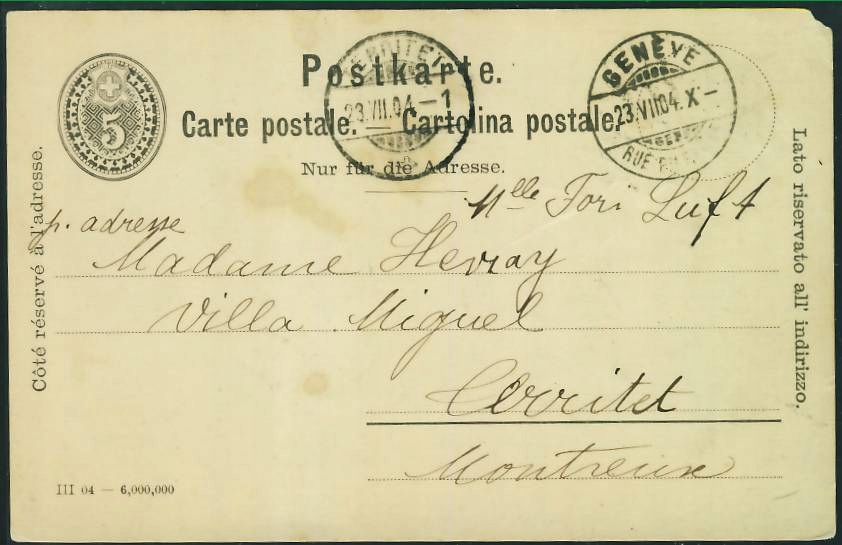 Postkarte.
Carte postale. — Cartolina postale.
Nur für die Adresse.
5
TERRITET
23.VII.04.-1
GENÈVE
23.VII.04.X-
RUE
Côté réservé à l'adresse.
Lato riservato all' indirizzo.
Mlle Tori Luft
p. adresse
Madame Hevray
Villa Miguel
Territet
Montreux
III 04 — 6,000,000